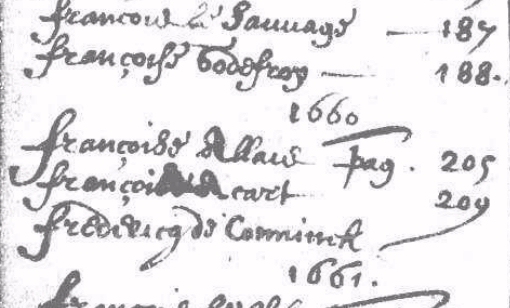 francois le Sauvage — 187
françoise Godefroy — 188.
1660
françoise Allais pag. 205
françois Acart 209
fredericq de Conninck
1661.
françois